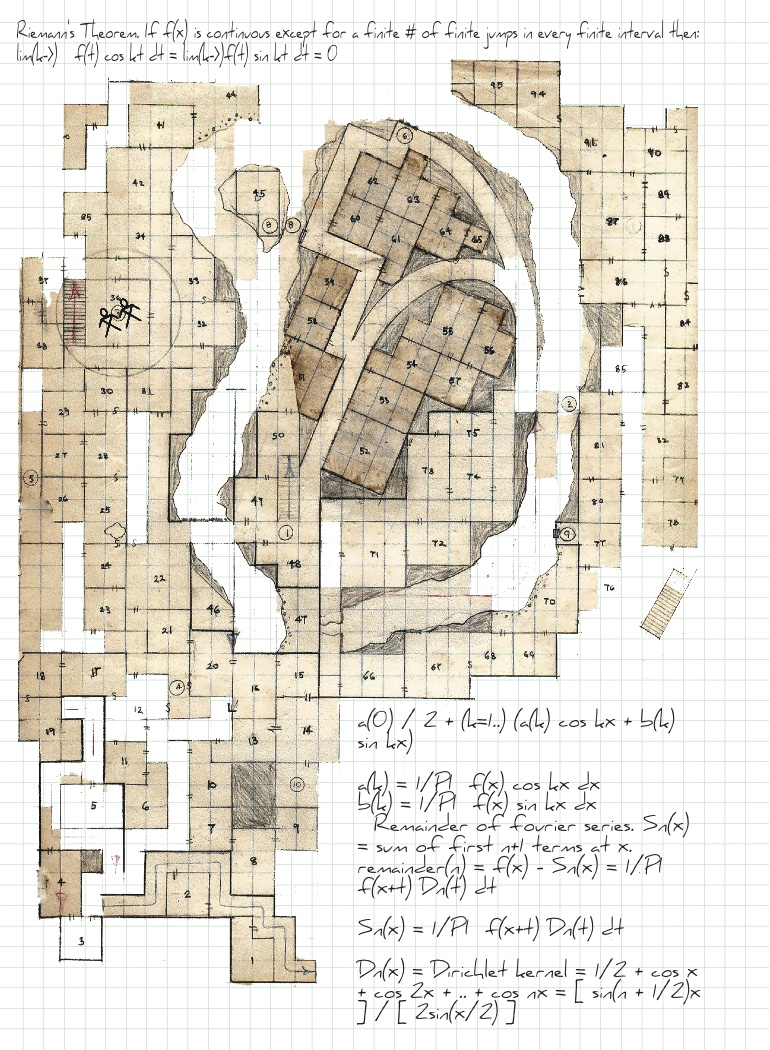 Riemann's Theorem. If f(x) is continuous except for a finite # of finite jumps in every finite interval then:
lim(k->) f(t) cos kt dt = lim(k->)f(t) sin kt dt = 0
95 94
44
41 91 90
42 62 45 89
63
85 60 64 87
34 61 65 88
37 33 59 86
36
32 58 55 84
38 54 56 85
30 31 51 57 83
29 53
50 75 2
27 28 52 81 82
5 73 74 79
26 49 80
25 1 9 78
71 72 77
24 22 48
23 46 47 70 76
21
20 68 69
18 17 15 66 67
4 16
12
19 13 14
11
10 10
5 6
7 9
8
4 2
3 1
a(0) / 2 + (k=1..) (a(k) cos kx + b(k)
sin kx)
a(k) = 1/PI f(x) cos kx dx
b(k) = 1/PI f(x) sin kx dx
Remainder of fourier series. Sn(x)
= sum of first n+1 terms at x.
remainder(n) = f(x) - Sn(x) = 1/PI
f(x+t) Dn(t) dt
Sn(x) = 1/PI f(x+t) Dn(t) dt
Dn(x) = Dirichlet kernel = 1/2 + cos x
+ cos 2x + .. + cos nx = [ sin(n + 1/2)x
] / [ 2sin(x/2) ]